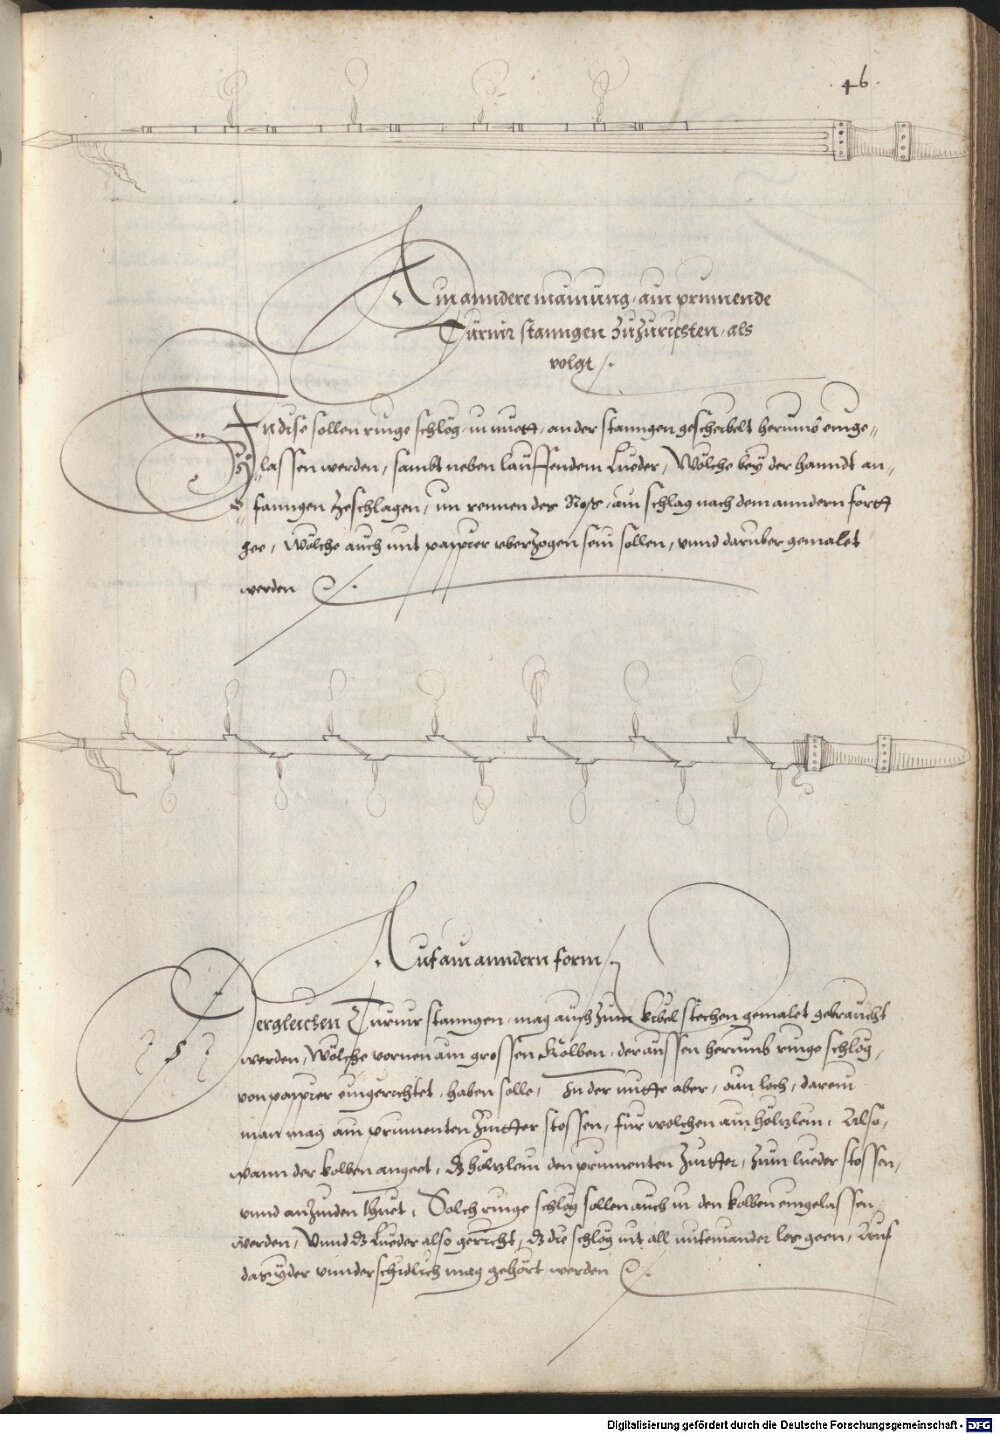 . 46 .
Ain anndere mainung, ain prinnende
Turnir stanngen Zuzurichten, als
volgt /.
In dise sollen ringe schlög, in mitt, an der stanngen gescheibelt herumb einge„
lassen werden, sambt neben lauffendem Lueder, Wölche bey der hanndt an„
fanngen Zeschlagen, im rennen des Ross, ain schlag nach dem anndern fortt
gee, Wölche auch mit pappier vberzogen sein sollen, vnnd darüber gemalet
werden
Auf ain anndern form
Dergleichen Turnir stanngen, mag auch zum kibel stechen gemalet gebraucht
werden, Wölche vornen ain grossen Kolben, der aussen herumb ringe schlög,
von pappier eingerichtet, haben solle, In der mitte aber, ain loch, darein
man mag ain prinnenten Zintter stossen, für wolchen ain hölzlein, Also,
wann der kolben angeet, dz hölzlein den prinnenten Zintter, zum lueder stossen,
vnnd anzinden thuet, Solch ringe schlög sollen auch in den kolben eingelassen
werden, Vnnd dz Lueder also gericht, dz die schlög nit all miteinander los geen, Auf
das yder vnnderschidlich mag gehört werden
Digitalisierung gefördert durch die Deutsche Forschungsgemeinschaft - DFG